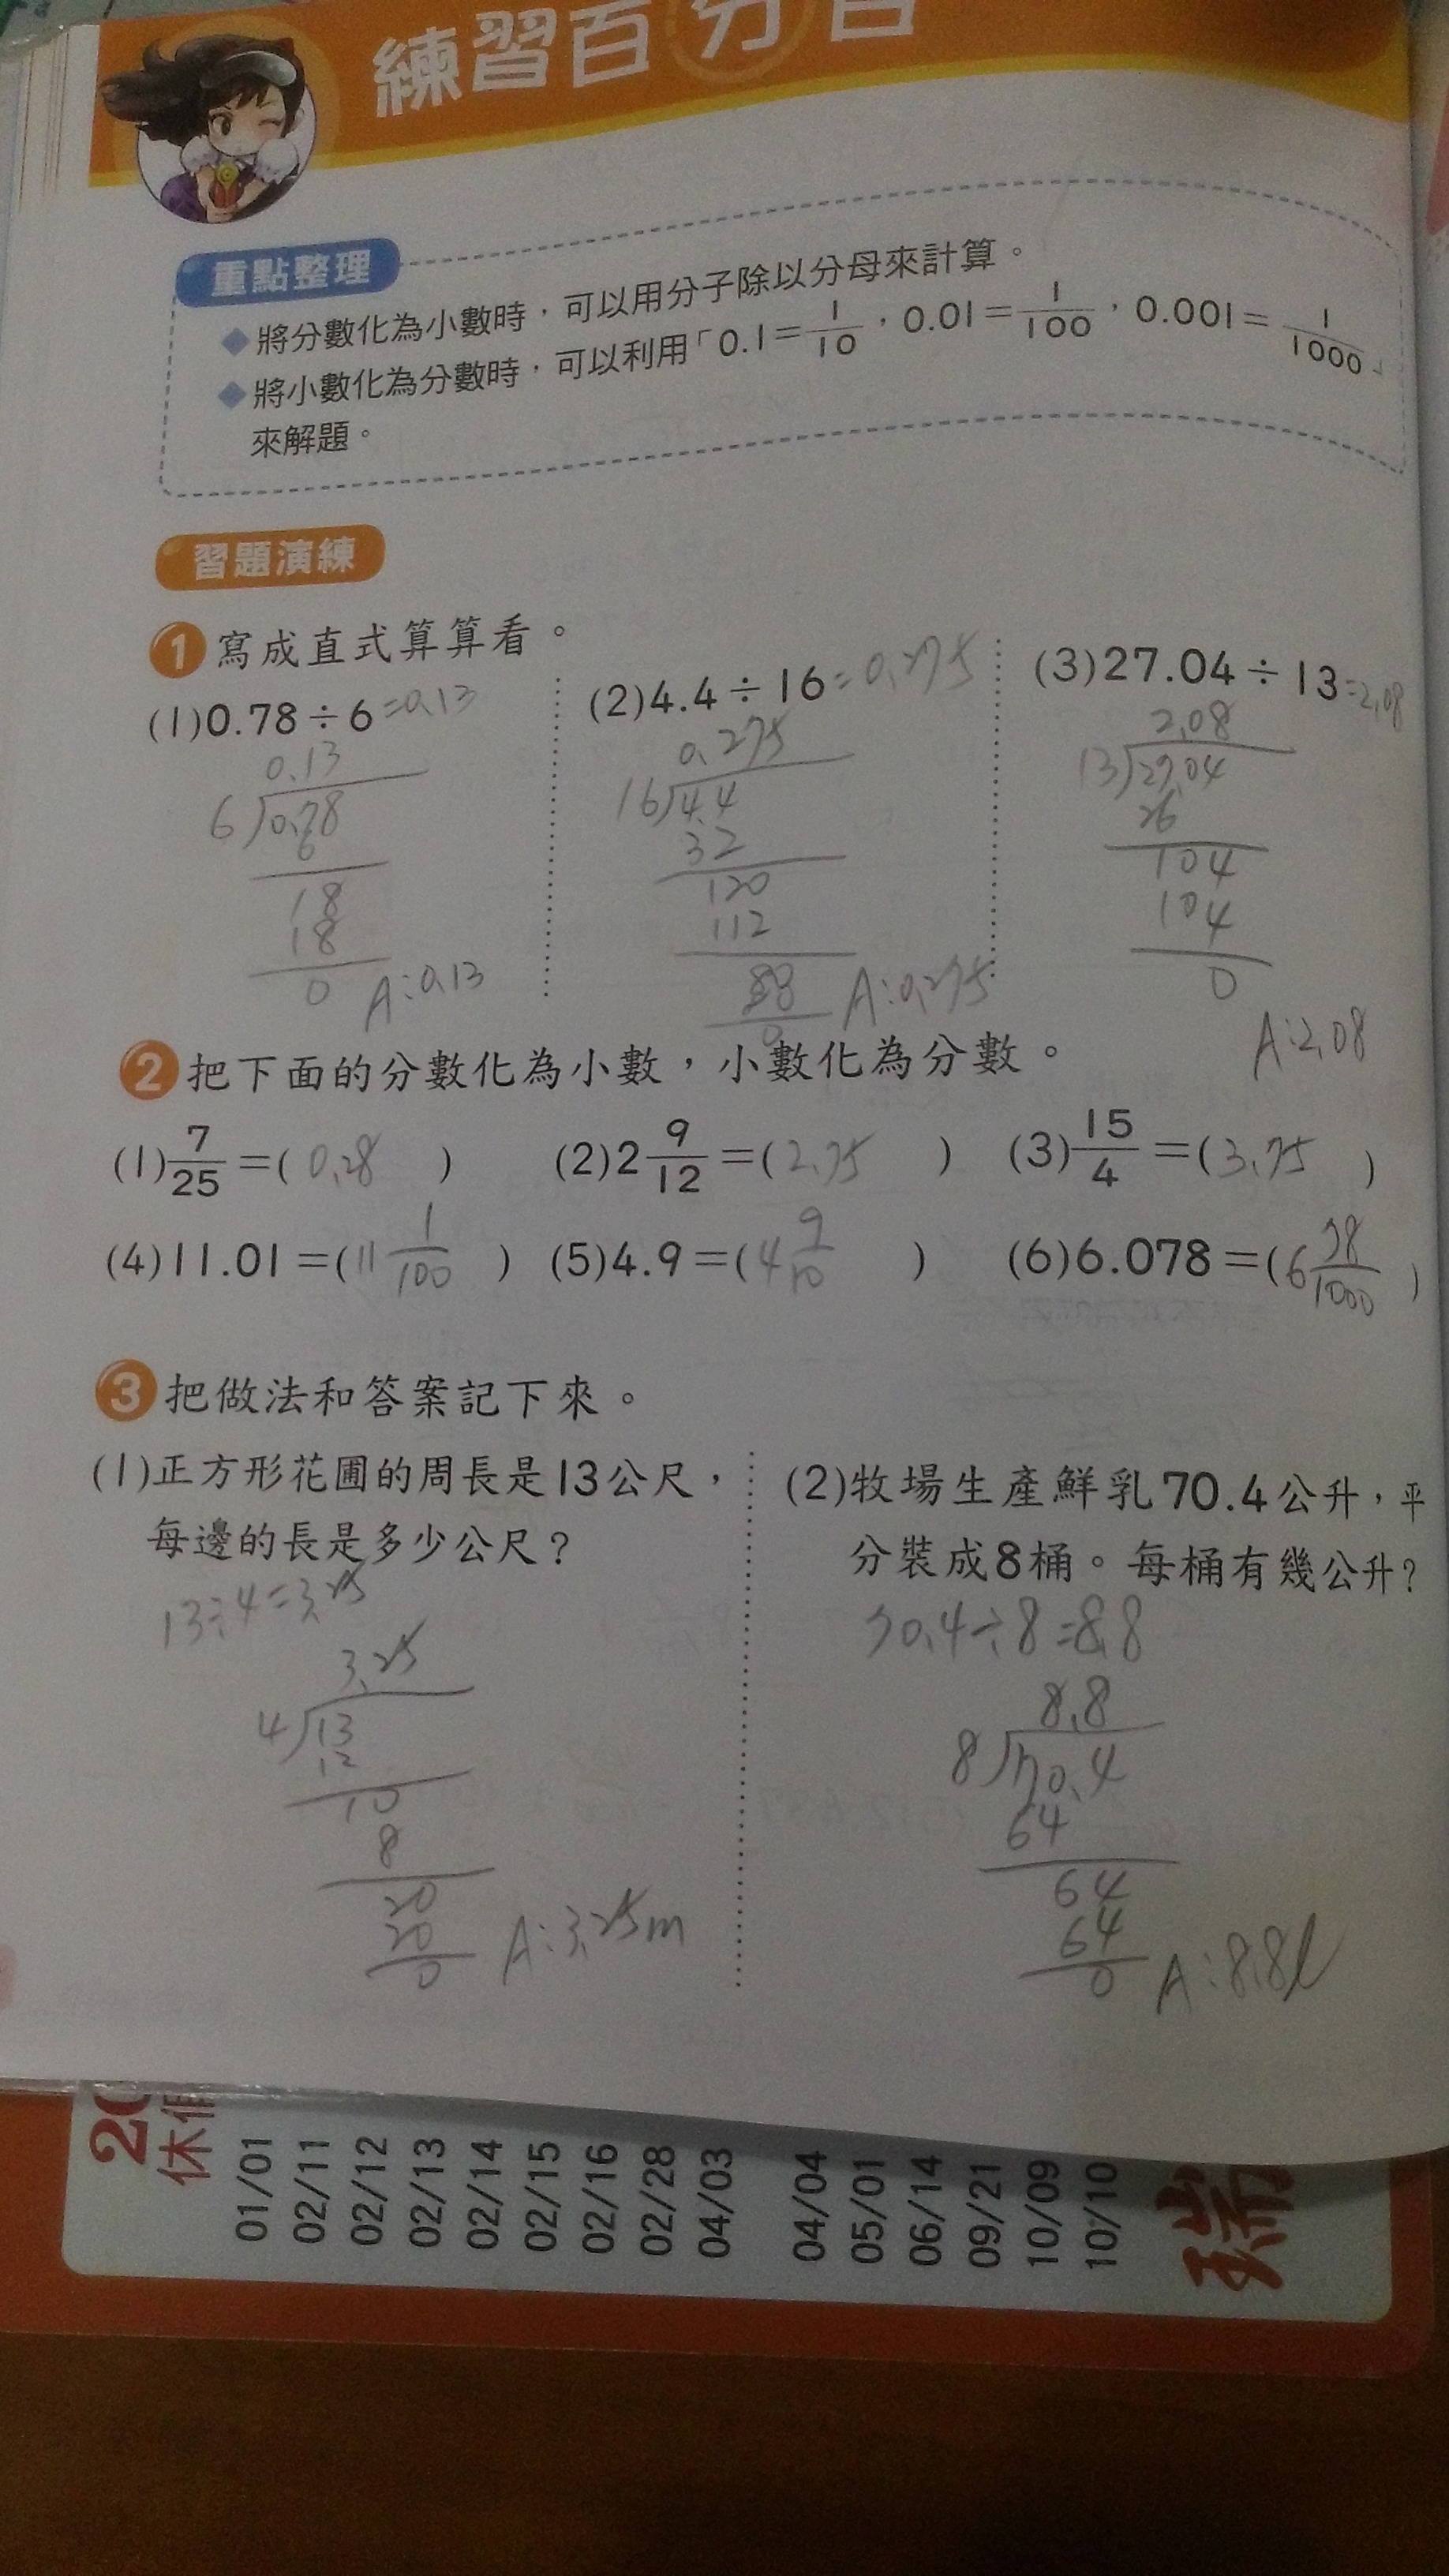 練習百分百
重點整理
◆將分數化為小數時，可以用分子除以分母來計算。
◆將小數化為分數時，可以利用「0.1=1/10，0.01=1/100，0.001=1/1000」
來解題。
習題演練
1 寫成直式算算看。
(1)0.78÷6=0.13
0.13
6 0.78
6
18
18
0
A:0.13
(2)4.4÷16=0.275
0.275
16 4.4
32
120
112
0
A:0.275
(3)27.04÷13=2.08
2.08
13 27.04
26
104
104
0
A:2.08
2 把下面的分數化為小數，小數化為分數。
(1)7/25=(0.28) (2)2 9/12=(2.75) (3)15/4=(3.75)
(4)11.01=(11 1/100) (5)4.9=(4 9/10) (6)6.078=(6 78/1000)
3 把做法和答案記下來。
(1)正方形花圃的周長是13公尺，
每邊的長是多少公尺？
13÷4=3.25
3.25
4 13
12
10
8
20
20
0
A:3.25m
(2)牧場生產鮮乳70.4公升，平
分裝成8桶。每桶有幾公升？
70.4÷8=8.8
8.8
8 70.4
64
64
64
0
A:8.8l
20
休假
01/01
02/11
02/12
02/13
02/14
02/15
02/16
02/28
04/03
04/04
05/01
06/14
09/21
10/09
10/10
瑞